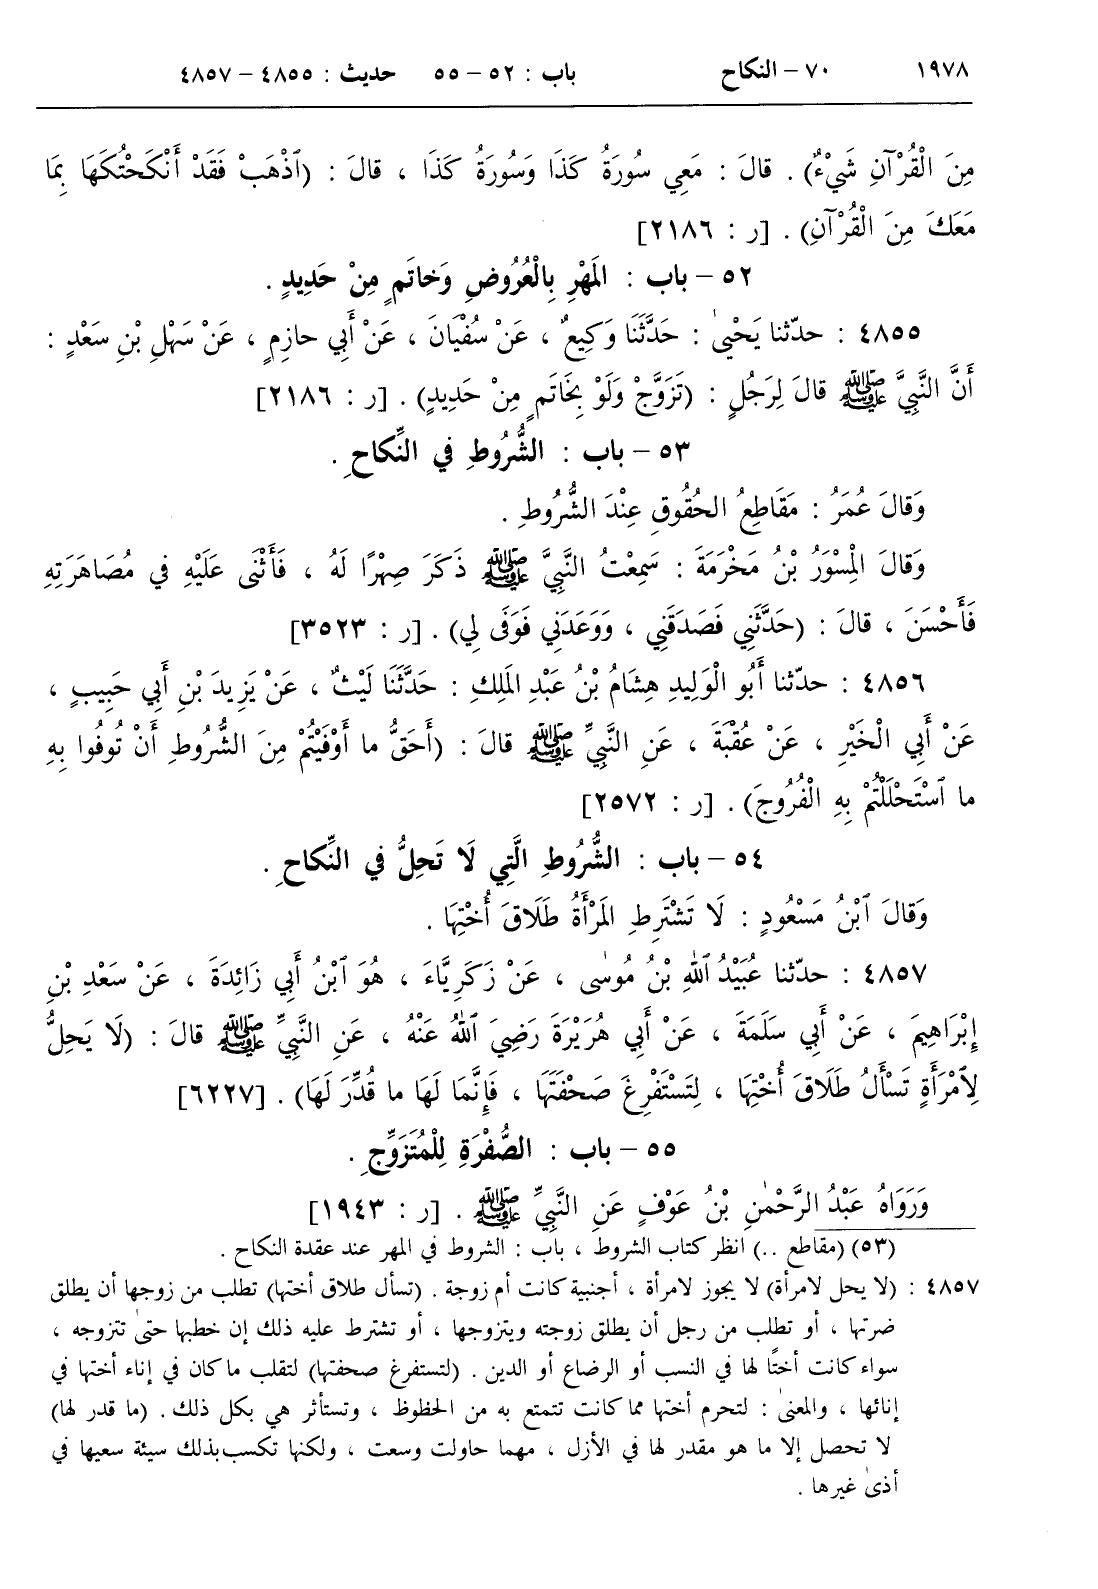 ١٩٧٨ ٧٠ – النكاح باب : ٥٢ – ٥٥ حديث : ٤٨٥٥ – ٤٨٥٧
مِنَ الْقُرْآنِ شَيْءٌ) . قالَ : مَعِي سُورَةُ كَذَا وَسُورَةُ كَذَا ، قالَ : (ٱذْهَبْ فَقَدْ أَنْكَحْتُكَهَا بِمَا
مَعَكَ مِنَ الْقُرْآنِ) . [ر : ٢١٨٦]
٥٢ – باب : المَهْرِ بِالْعُرُوضِ وَخاتَمٍ مِنْ حَدِيدٍ .
٤٨٥٥ : حدّثنا يَحْيىٰ : حَدَّثَنَا وَكِيعٌ ، عَنْ سُفْيَانَ ، عَنْ أَبِي حازِمٍ ، عَنْ سَهْلِ بْنِ سَعْدٍ :
أَنَّ النَّبِيَّ ﷺ قالَ لِرَجُلٍ : (تَزَوَّجْ وَلَوْ بِخَاتَمٍ مِنْ حَدِيدٍ) . [ر : ٢١٨٦]
٥٣ – باب : الشُّرُوطِ في النِّكاحِ .
وَقالَ عُمَرُ : مَقَاطِعُ الحُقُوقِ عِنْدَ الشُّرُوطِ .
وَقالَ الْمِسْوَرُ بْنُ مَخْرَمَةَ : سَمِعْتُ النَّبِيَّ ﷺ ذَكَرَ صِهْرًا لَهُ ، فَأَثْنَى عَلَيْهِ في مُصَاهَرَتِهِ
فَأَحْسَنَ ، قالَ : (حَدَّثَنِي فَصَدَقَنِي ، وَوَعَدَنِي فَوَفَى لِي) . [ر : ٣٥٢٣]
٤٨٥٦ : حدّثنا أَبُو الْوَلِيدِ هِشَامُ بْنُ عَبْدِ المَلِكِ : حَدَّثَنَا لَيْثٌ ، عَنْ يَزِيدَ بْنِ أَبِي حَبِيبٍ ،
عَنْ أَبِي الْخَيْرِ ، عَنْ عُقْبَةَ ، عَنِ النَّبِيِّ ﷺ قالَ : (أَحَقُّ ما أَوْفَيْتُمْ مِنَ الشُّرُوطِ أَنْ تُوفُوا بِهِ
ما ٱسْتَحْلَلْتُمْ بِهِ الْفُرُوجَ) . [ر : ٢٥٧٢]
٥٤ – باب : الشُّرُوطِ الَّتِي لَا تَحِلُّ في النِّكاحِ .
وَقالَ ٱبْنُ مَسْعُودٍ : لَا تَشْتَرِطِ المَرْأَةُ طَلَاقَ أُخْتِهَا .
٤٨٥٧ : حدّثنا عُبَيْدُ ٱللهِ بْنُ مُوسٰى ، عَنْ زَكَرِيَّاءَ ، هُوَ ٱبْنُ أَبِي زَائِدَةَ ، عَنْ سَعْدِ بْنِ
إِبْرَاهِيمَ ، عَنْ أَبِي سَلَمَةَ ، عَنْ أَبِي هُرَيْرَةَ رَضِيَ ٱللهُ عَنْهُ ، عَنِ النَّبِيِّ ﷺ قالَ : (لَا يَحِلُّ
لِٱمْرَأَةٍ تَسْأَلُ طَلَاقَ أُخْتِهَا ، لِتَسْتَفْرِغَ صَحْفَتَهَا ، فَإِنَّمَا لَهَا ما قُدِّرَ لَهَا) . [٦٢٢٧]
٥٥ – باب : الصُّفْرَةِ لِلْمُتَزَوِّجِ .
وَرَوَاهُ عَبْدُ الرَّحْمٰنِ بْنُ عَوْفٍ عَنِ النَّبِيِّ ﷺ . [ر : ١٩٤٣]
(٥٣) (مقاطع ..) انظر كتاب الشروط ، باب : الشروط في المهر عند عقدة النكاح .
٤٨٥٧ : (لا يحل لامرأة) لا يجوز لامرأة ، أجنبية كانت أم زوجة . (تسأل طلاق أختها) تطلب من زوجها أن يطلق
ضرتها ، أو تطلب من رجل أن يطلق زوجته ويتزوجها ، أو تشترط عليه ذلك إن خطبها حتىٰ تتزوجه ،
سواء كانت أختًا لها في النسب أو الرضاع أو الدين . (لتستفرغ صحفتها) لتقلب ما كان في إناء أختها في
إنائها ، والمعنىٰ : لتحرم أختها مما كانت تتمتع به من الحظوظ ، وتستأثر هي بكل ذلك . (ما قدر لها)
لا تحصل إلا ما هو مقدر لها في الأزل ، مهما حاولت وسعت ، ولكنها تكسب بذلك سيئة سعيها في
أذىٰ غيرها .